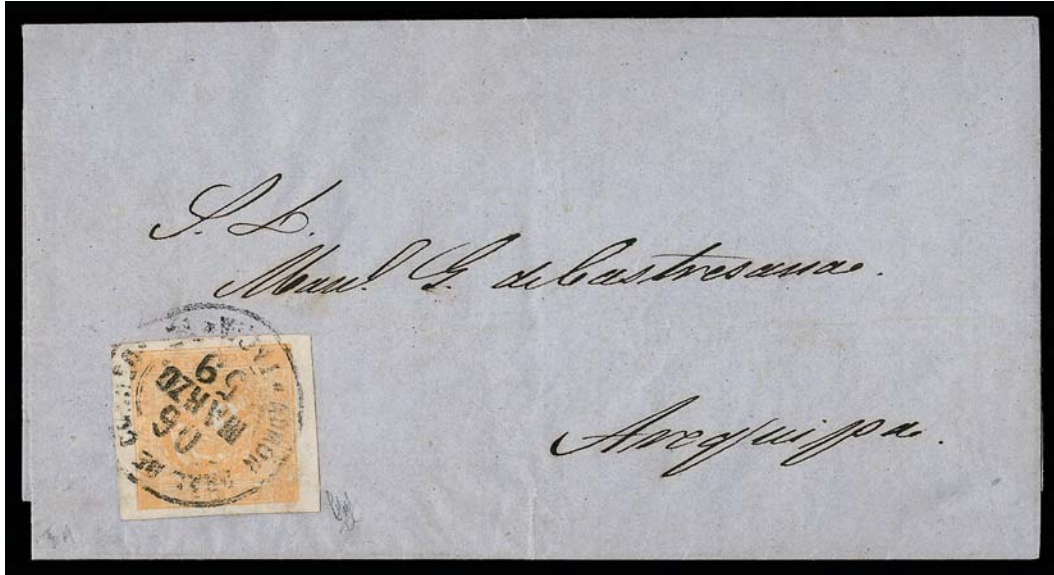 S. D.
Manl. G. de Castresana.
Arequipa.
MARZO